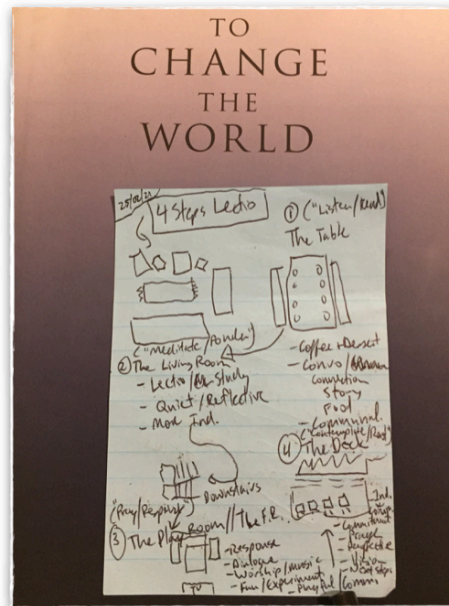 TO
CHANGE
THE
WORLD
25/02/21
4 Steps Lectio
① ("Listen/Read")
The Table
- Coffee + Dessert
- Convo/
Connection
Story
Food
- Communal
("Meditate/Ponder")
② The Living Room
- Lectio/Study
- Quiet/Reflective
- More Ind.
Downstairs
("Pray/Respond")
③ The Play Room // The F.R.
- Response
- Dialogue
- Worship/music
- Fun/Experiment
- Playful/Comm
TV
("Contemplate/Rest")
④ The Deck
Ind.
- Commitment
- Prayer
- Vision
- Next steps